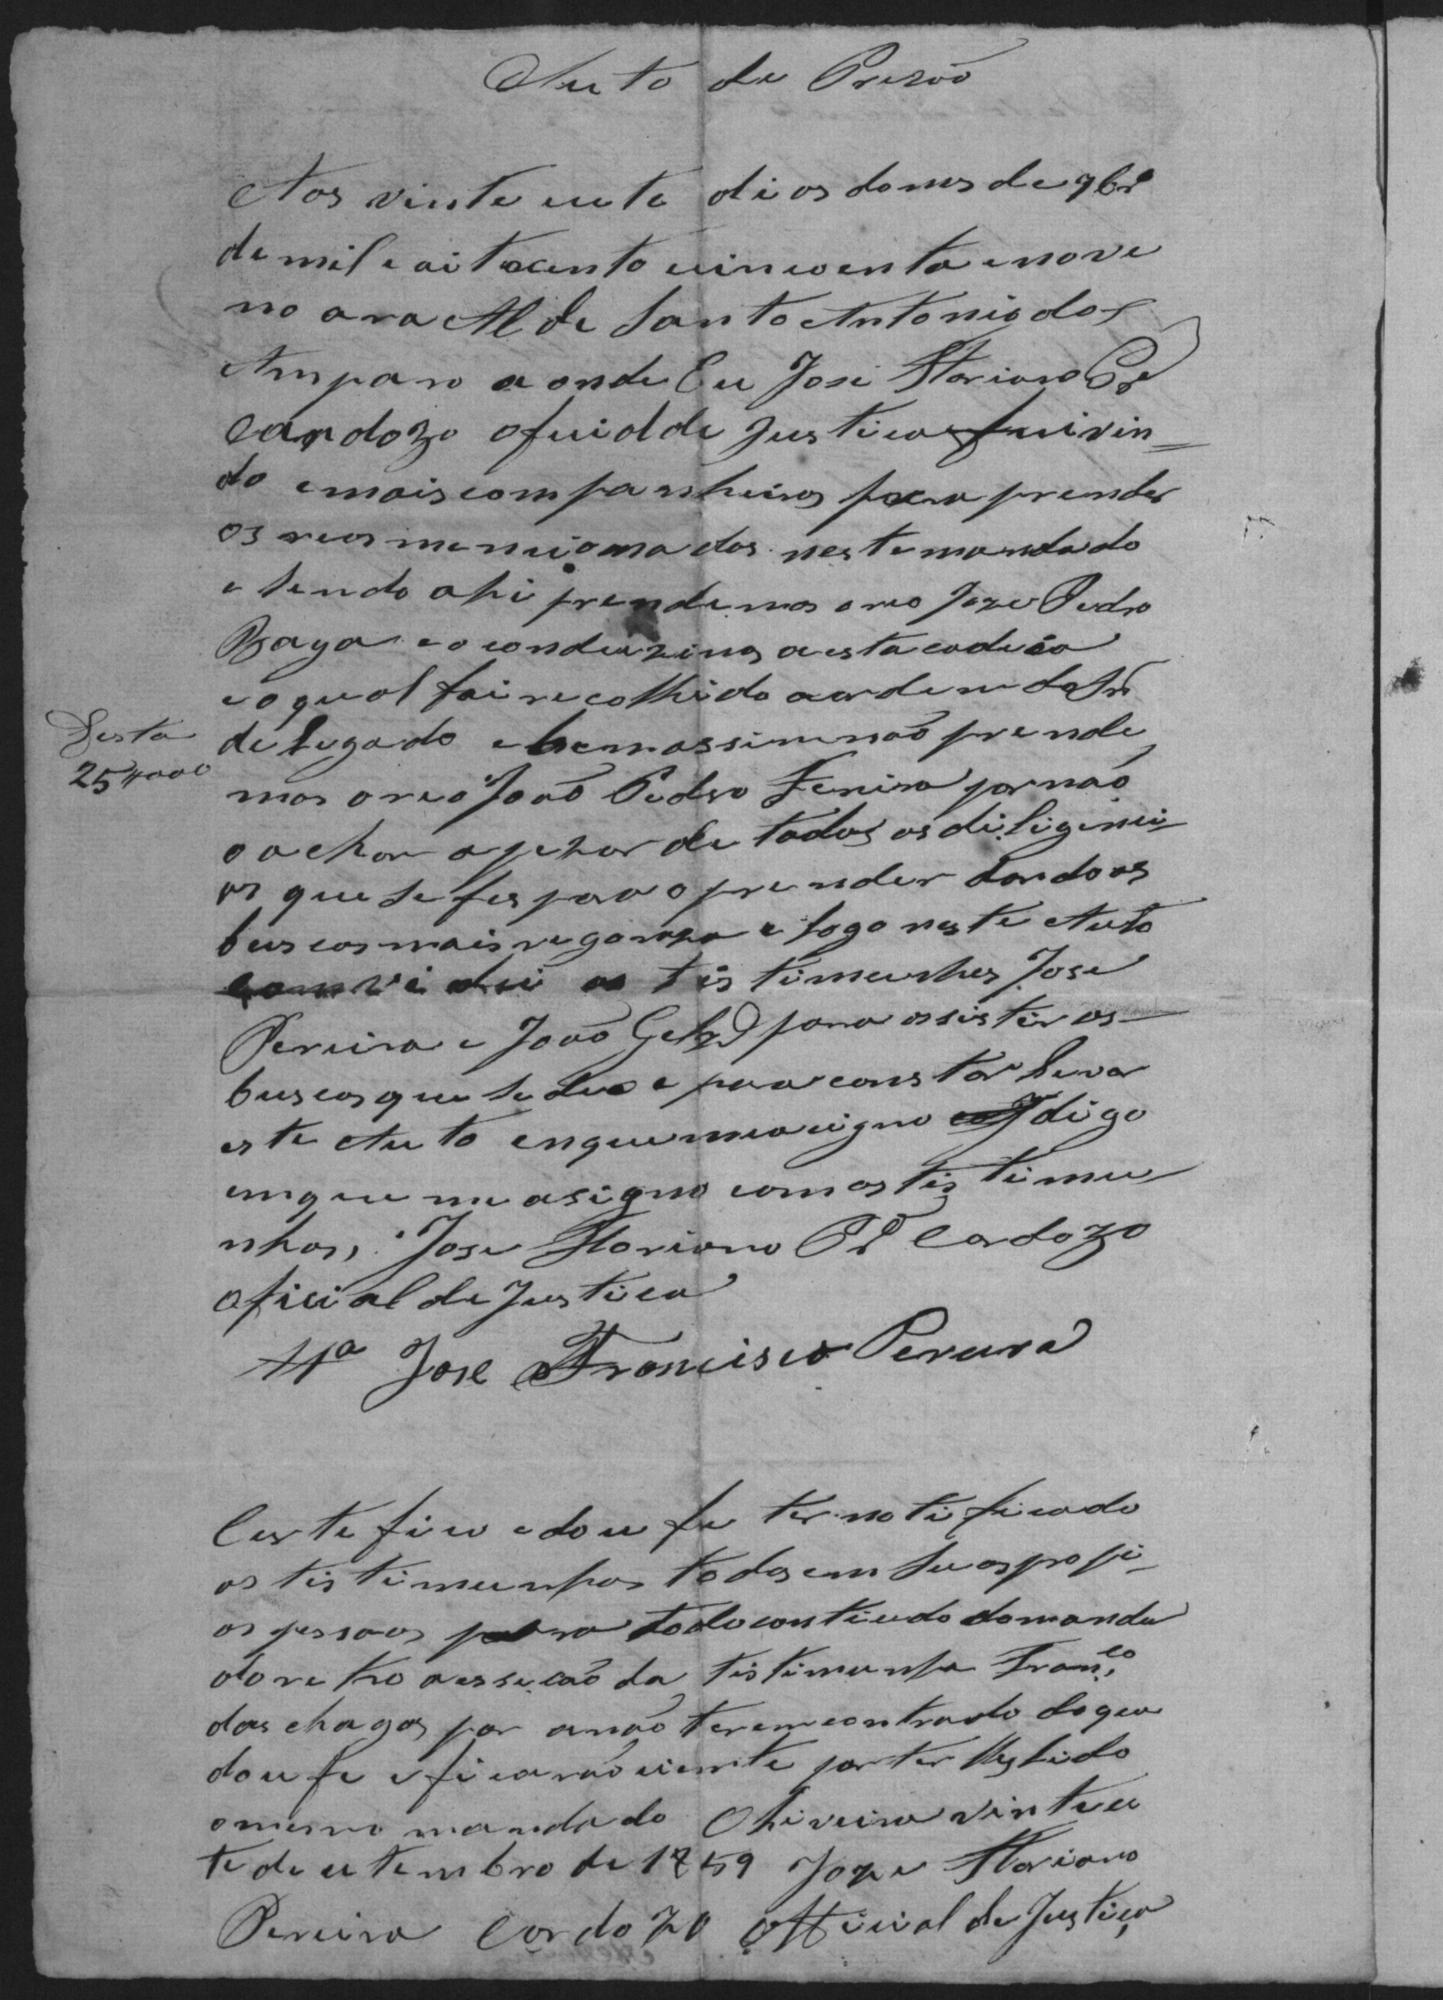 Auto de Prezaõ
Aos vinte cete dias do mes de 7br.º
de mil e aitoxento cincoenta e nove
no ara Al de Santo Antonio do
Amparo a onde Eu Jose Floriano Pr.ª
Cardozo ofucial de Justica fui vin=
do e mais companheiros para prender
os reos mencionados neste mandado
e sendo ahi prendemos o reo Joze Pedro
Braga e o conduzimos a esta cadeia
e o qual foi recolhido a ordem do Sr.
delegado e bem assim naõ prende
Desta
25#000
mos o reo Joaõ Pedro Fereira por naõ
o achar a pezar de todas as diligenci-
as que se fes para o prender dando as
buscas mais regoroza e logo neste Auto
comvidei as tistimunhas Jose
Pereira e Joaõ para asistir as
buscas que se deo e para constar levar
este Auto enque me acigno digo
enque me asigno com as tistimu
nhas, Jose Floriano Pr.ª Cardozo
oficial de Justica
Ttª Jose Francisco Pereira
Certefico e dou fe ter notificado
as tistimunhas todas em suas propi-
as pessoas para todo contiudo do manda
do retro a esseçaõ da tistimunha Fran.co
das chagas por a naõ ter emcontrado do que
dou fe e ficaraõ ciente por ter lhes lido
o mesmo mandado Oliveira vinte ce
te de cetembro de 1859 Joze Floriano
Pereira Cardozo Official de Justiça